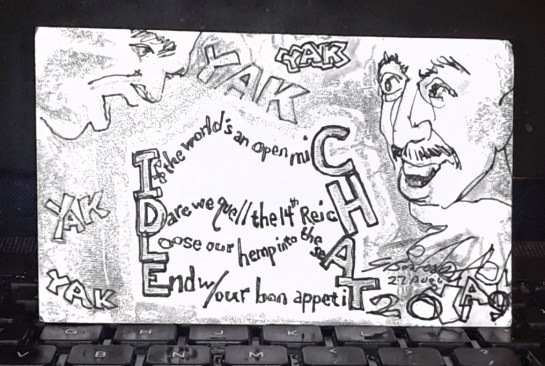 YAK
YAK
If the world's an open miC
Dare we quell the 14th ReicH
Loose our hemp into the seA
End w/our bon appetiT
YAK
YAK
G H J K L
V B N M